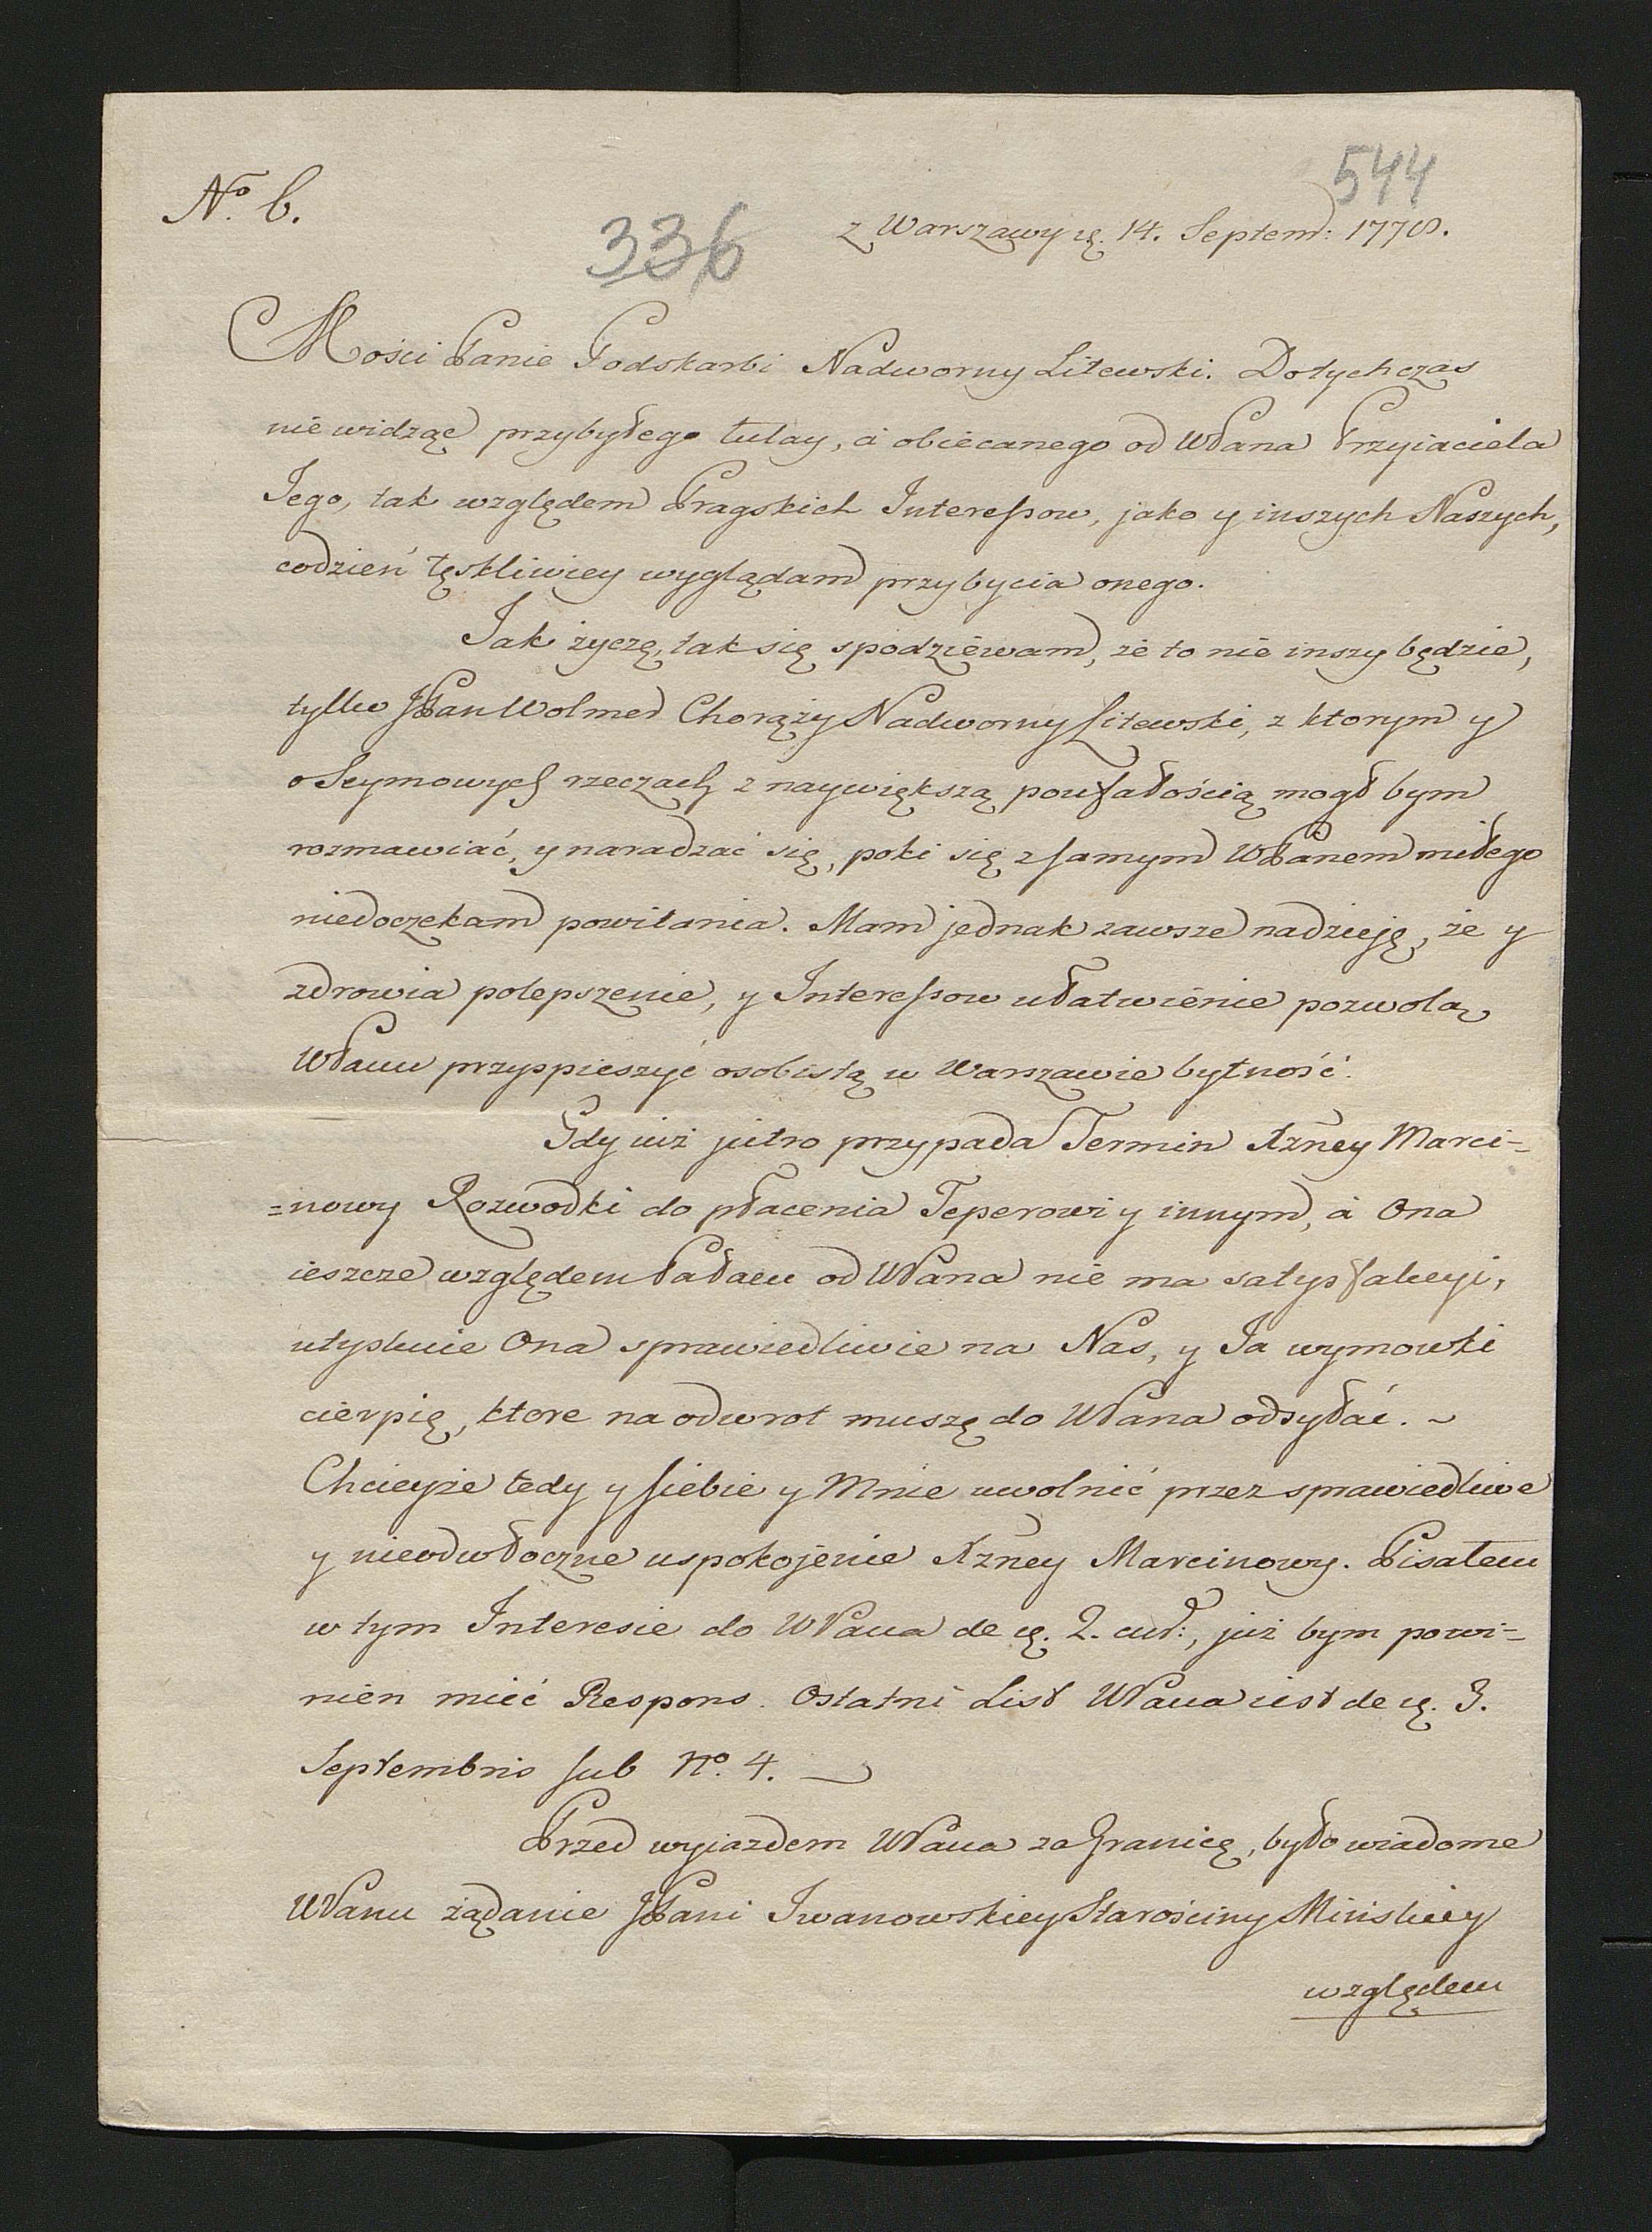 544
Nº. 6.
336
z Warszawy ą. 14. Septem: 1778.
Mości Panie Podskarbi Nadworny Litewski. Dotychczas
nie widząc przybyłego tutay, á obiecanego od WPana Przyiaciela
Jego, tak względem Pragskich Interessow, jako y inszych Naszych,
codzień tęskliwiey wyglądam przybycia onego.
Jak życzę, tak się spodziewam, że to nie inszy będzie,
tylko JPan Wolmer Chorąży Nadworny Litewski, z ktorym y
o Seymowych rzeczach z naywiększą poufałością mogł bym
rozmawiać, y naradzać się, poki się z samym WPanem miłego
niedoczekam powitania. Mam jednak zawsze nadzieję, że y
zdrowia polepszenie, y Interessow ułatwienie pozwolą
WPanu przyspieszyć osobistą w Warszawie bytność.
Gdy iuż jutro przypada Termin Xżney Marci-
=nowy Rozwodki do płacenia Teperowi y innym, á Ona
ieszcze względem Pałacu od WPana nie ma satysfakcyi,
utyskuie Ona sprawiedliwie na Nas, y Ja wymowki
cierpię, ktore na odwrot muszę do WPana odsyłać. ~
Chcieyże tedy y siebie y Mnie uwolnić przez sprawiedliwe
y nieodwłoczne uspokojenie Xżney Marcinowy. Pisałem
w tym Interesie do WPana de ą. 2. cur:, już bym powi-
nien mieć Respons. Ostatni List WPana iest de ą. 3.
Septembris sub Nº. 4. —
Przed wyiazdem WPana za Granicę, było wiadome
WPanu żądanie JPani Iwanowskiey Starościny Mińskiey
względem